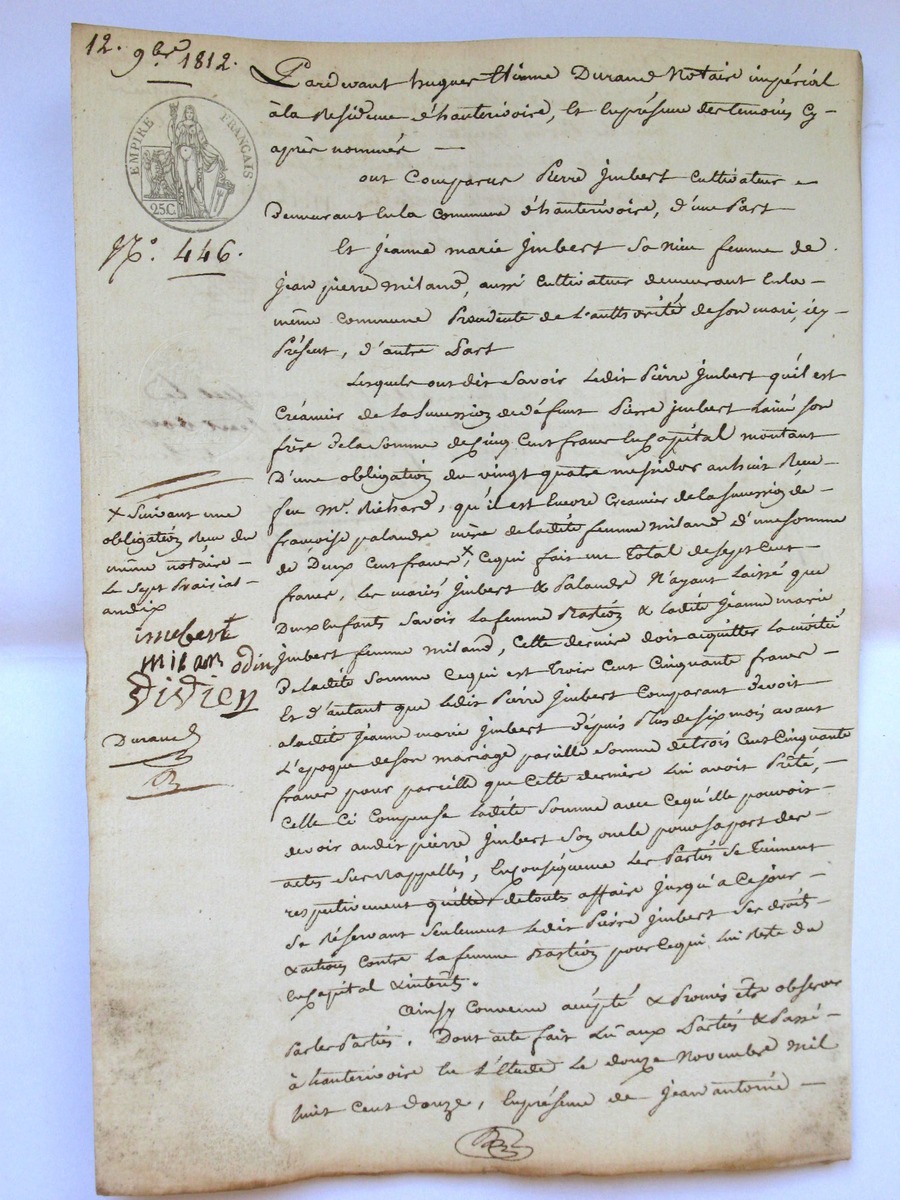 12. 9bre 1812.
EMPIRE FRANÇAIS
25C
No. 446.
Pardevant hugues Etienne Durand Notaire impérial
à la Residence d'hauterivoire, Et En présence des temoins Cy-
après nommés —
ont Comparus Pierre Jmbert Cultivateur
Demeurant En la Commune d'hauterivoire, d'une Part
Et Jeanne marie Jmbert Sa niece femme de
Jean pierre Miland, aussi Cultivateur demeurant En la
même Commune Procedente de L'authorité de son mari, icy
Présent, d'autre Part
Lesquels ont dit Savoir Ledit Pierre Jmbert qu'il est
Créancier de La Succession de défunt Pierre Jmbert L'ainé son
frère de la Somme de Cinq Cent francs En Capital montant
D'une obligation du vingt quatre messidor an huit Reçue
feu Mr. Richard, qu'il est Encore Créancier de la Succession de
françoise palandre mère de ladite femme miland d'une somme
de Deux Cent francs x, Ce qui fait un Total de sept Cent
francs, Les mariés Jmbert & Palandre N'ayant Laissé que
Deux Enfants Savoir La femme & Ladite Jeanne marie
Jmbert femme miland, Cette derniere doit aiquitter La moitié
De ladite Somme Ce qui est Trois Cent Cinquante francs —
Et d'autant que Ledit Pierre Jmbert Comparant devoit
a ladite Jeanne marie Jmbert depuis Plus de six mois avant
L'époque de son mariage pareille Somme de trois Cent Cinquante
francs pour pareille que Cette derniere Lui avoit Prété,
Celle Ci Compense Ladite Somme avec Ce qu'elle pouvoit
devoir audit pierre Jmbert Son oncle pour sa part des
actes Sus Rappellés, En Conséquence Les Partiés Se Tiennent
respectivement quittes de touts affaire jusqu'a Ce jour
Se Réservant Seulement Ledit Pierre Jmbert Ses droits
& actions Contre La femme pour Ce qui Lui Reste du
En Capital & interêts.
Ainsy Convenu accépté & Promis être observer
Par les Partiés. Dont acte fait Lu aux Partiés & Passé
à hauterivoire En L'étude Le douze Novembre mil
huit Cent douze, En présence de Jean antoine —
x Suivant une
obligation Reçue du
même notaire —
Le Sept Prairial
an dix
imbert
milan odin
Didier
Durand